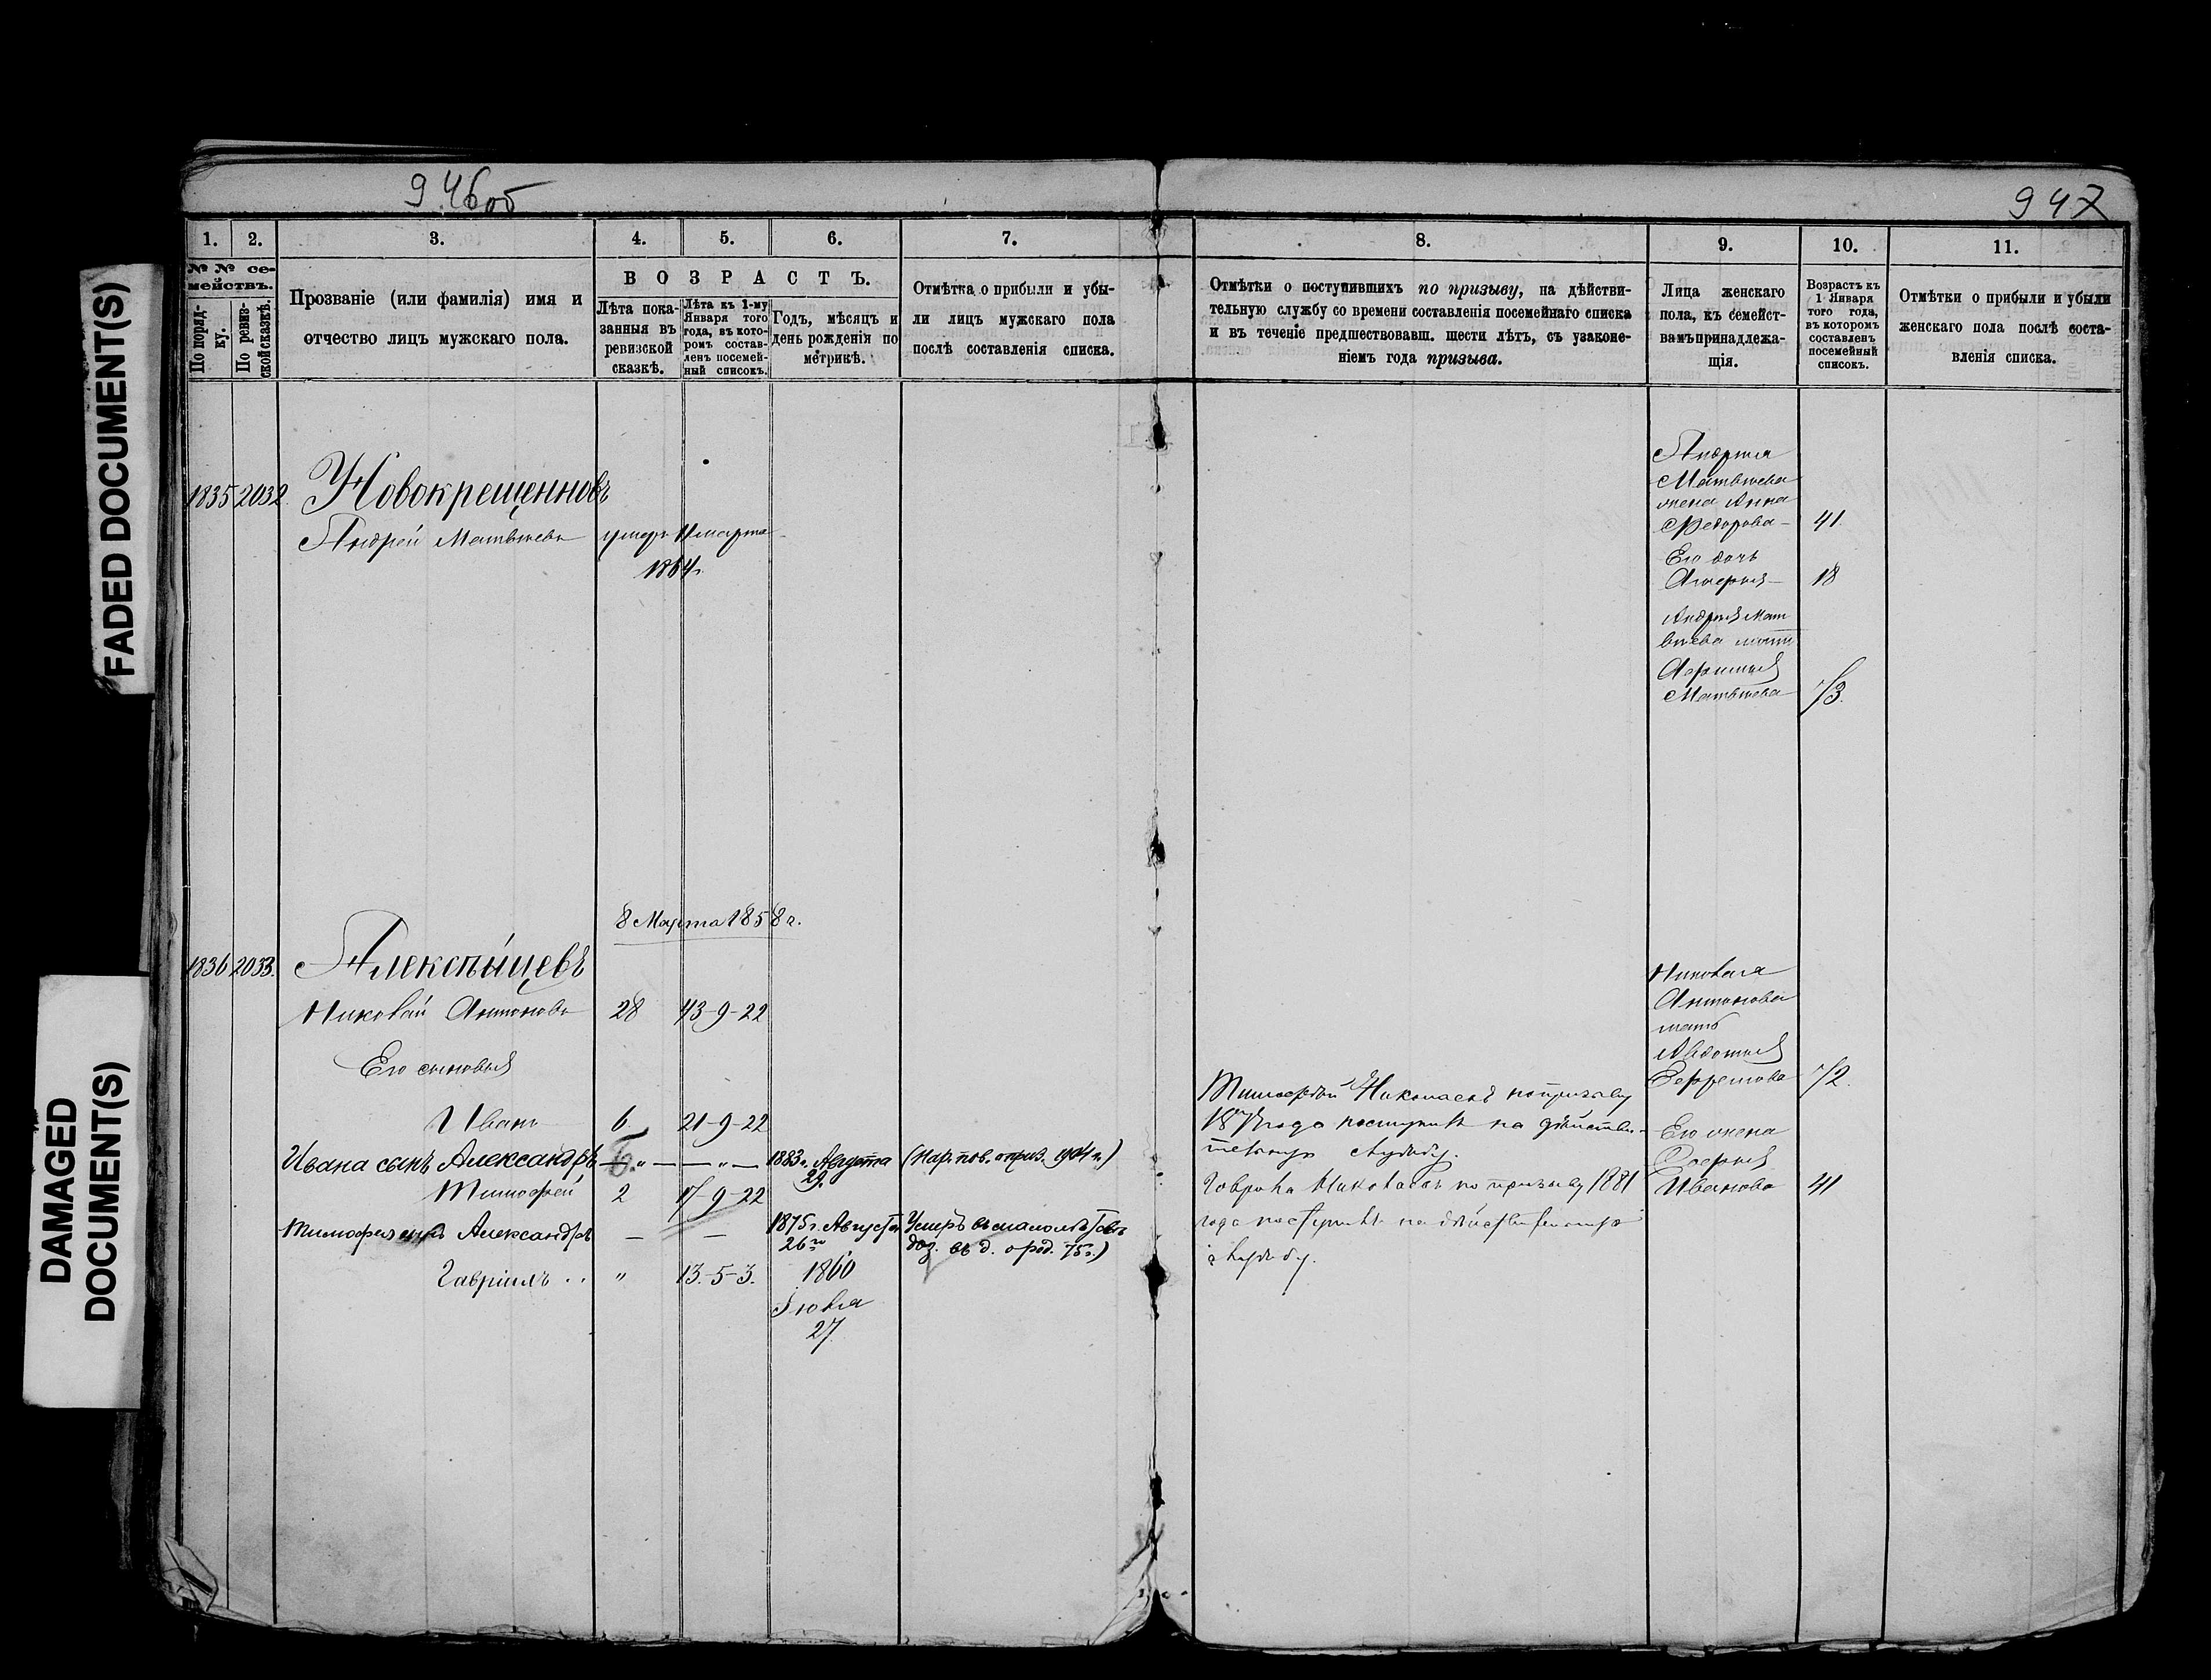 946об
947
FADED DOCUMENT(S)
DAMAGED
DOCUMENT(S)
1. 2. 3. 4. 5. 6. 7. 8. 9. 10. 11.
№ № се-
мействъ.
По поряд-
ку.
По ревиз-
ской сказкѣ.
Прозваніе (или фамилія) имя и
отчество лицъ мужскаго пола.
ВОЗРАСТЪ.
Лѣта пока-
занныя въ
ревизской
сказкѣ.
Лѣта къ 1-му
Января того
года, въ кото-
ромъ состав-
ленъ посемей-
ный списокъ.
Годъ, мѣсяцъ и
день рожденія по
метрикѣ.
Отмѣтка о прибыли и убы-
ли лицъ мужскаго пола
послѣ составленія списка.
Отмѣтки о поступившихъ по призыву, на дѣйстви-
тельную службу со времени составленія посемейнаго списка
и въ теченіе предшествовавш. шести лѣтъ, съ узаконе-
ніемъ года призыва.
Лица женскаго
пола, къ семейст-
вамъ принадлежа-
щія.
Возрастъ къ
1 Января
того года,
въ которомъ
составленъ
посемейный
списокъ.
Отмѣтки о прибыли и убыли
женскаго пола послѣ соста-
вленія списка.
1835 2032 Новокрещенновъ
Андрей Матвѣевъ умеръ 11 марта
1864г.
Андрея
Матвѣева
жена Анна
Федорова 41.
Его дочь
18
Андрея Мат
вѣева мать
Матвѣева 73.
8 Марта 1858 г.
1836 2033. Алексѣйцевъ
Николай Антоновъ 28 43-9-22
Его сыновья
Иванъ 6 21-9-22
Ивана сынъ Александръ 1883 г. Августа (Нар. пов. о приз. 1904 г.)
29.
Тимофей 2 17-9-22
Тимофея сынъ Александръ — — 1875 г. Августа Умеръ въ малолѣтствѣ
26го въ д. о род. 75 г.)
Гавріилъ . . " 13.-5-3. 1860
Іюля
27.
Тимофей Николаевъ по призыву
187 года поступилъ на дѣйстви-
тельную службу.
Гаврила Николаевъ по призыву 1881
года поступилъ на дѣйствительную
службу.
Николая
Антонова
мать
Авдотья
Ефремова 72.
Его жена
Софья
Иванова 41